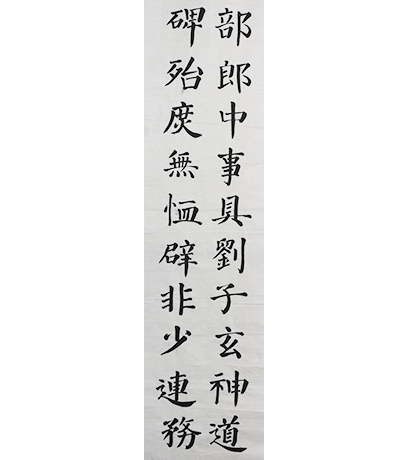 部郎中事具劉子玄神道
碑殆庶無恤辟非少連務